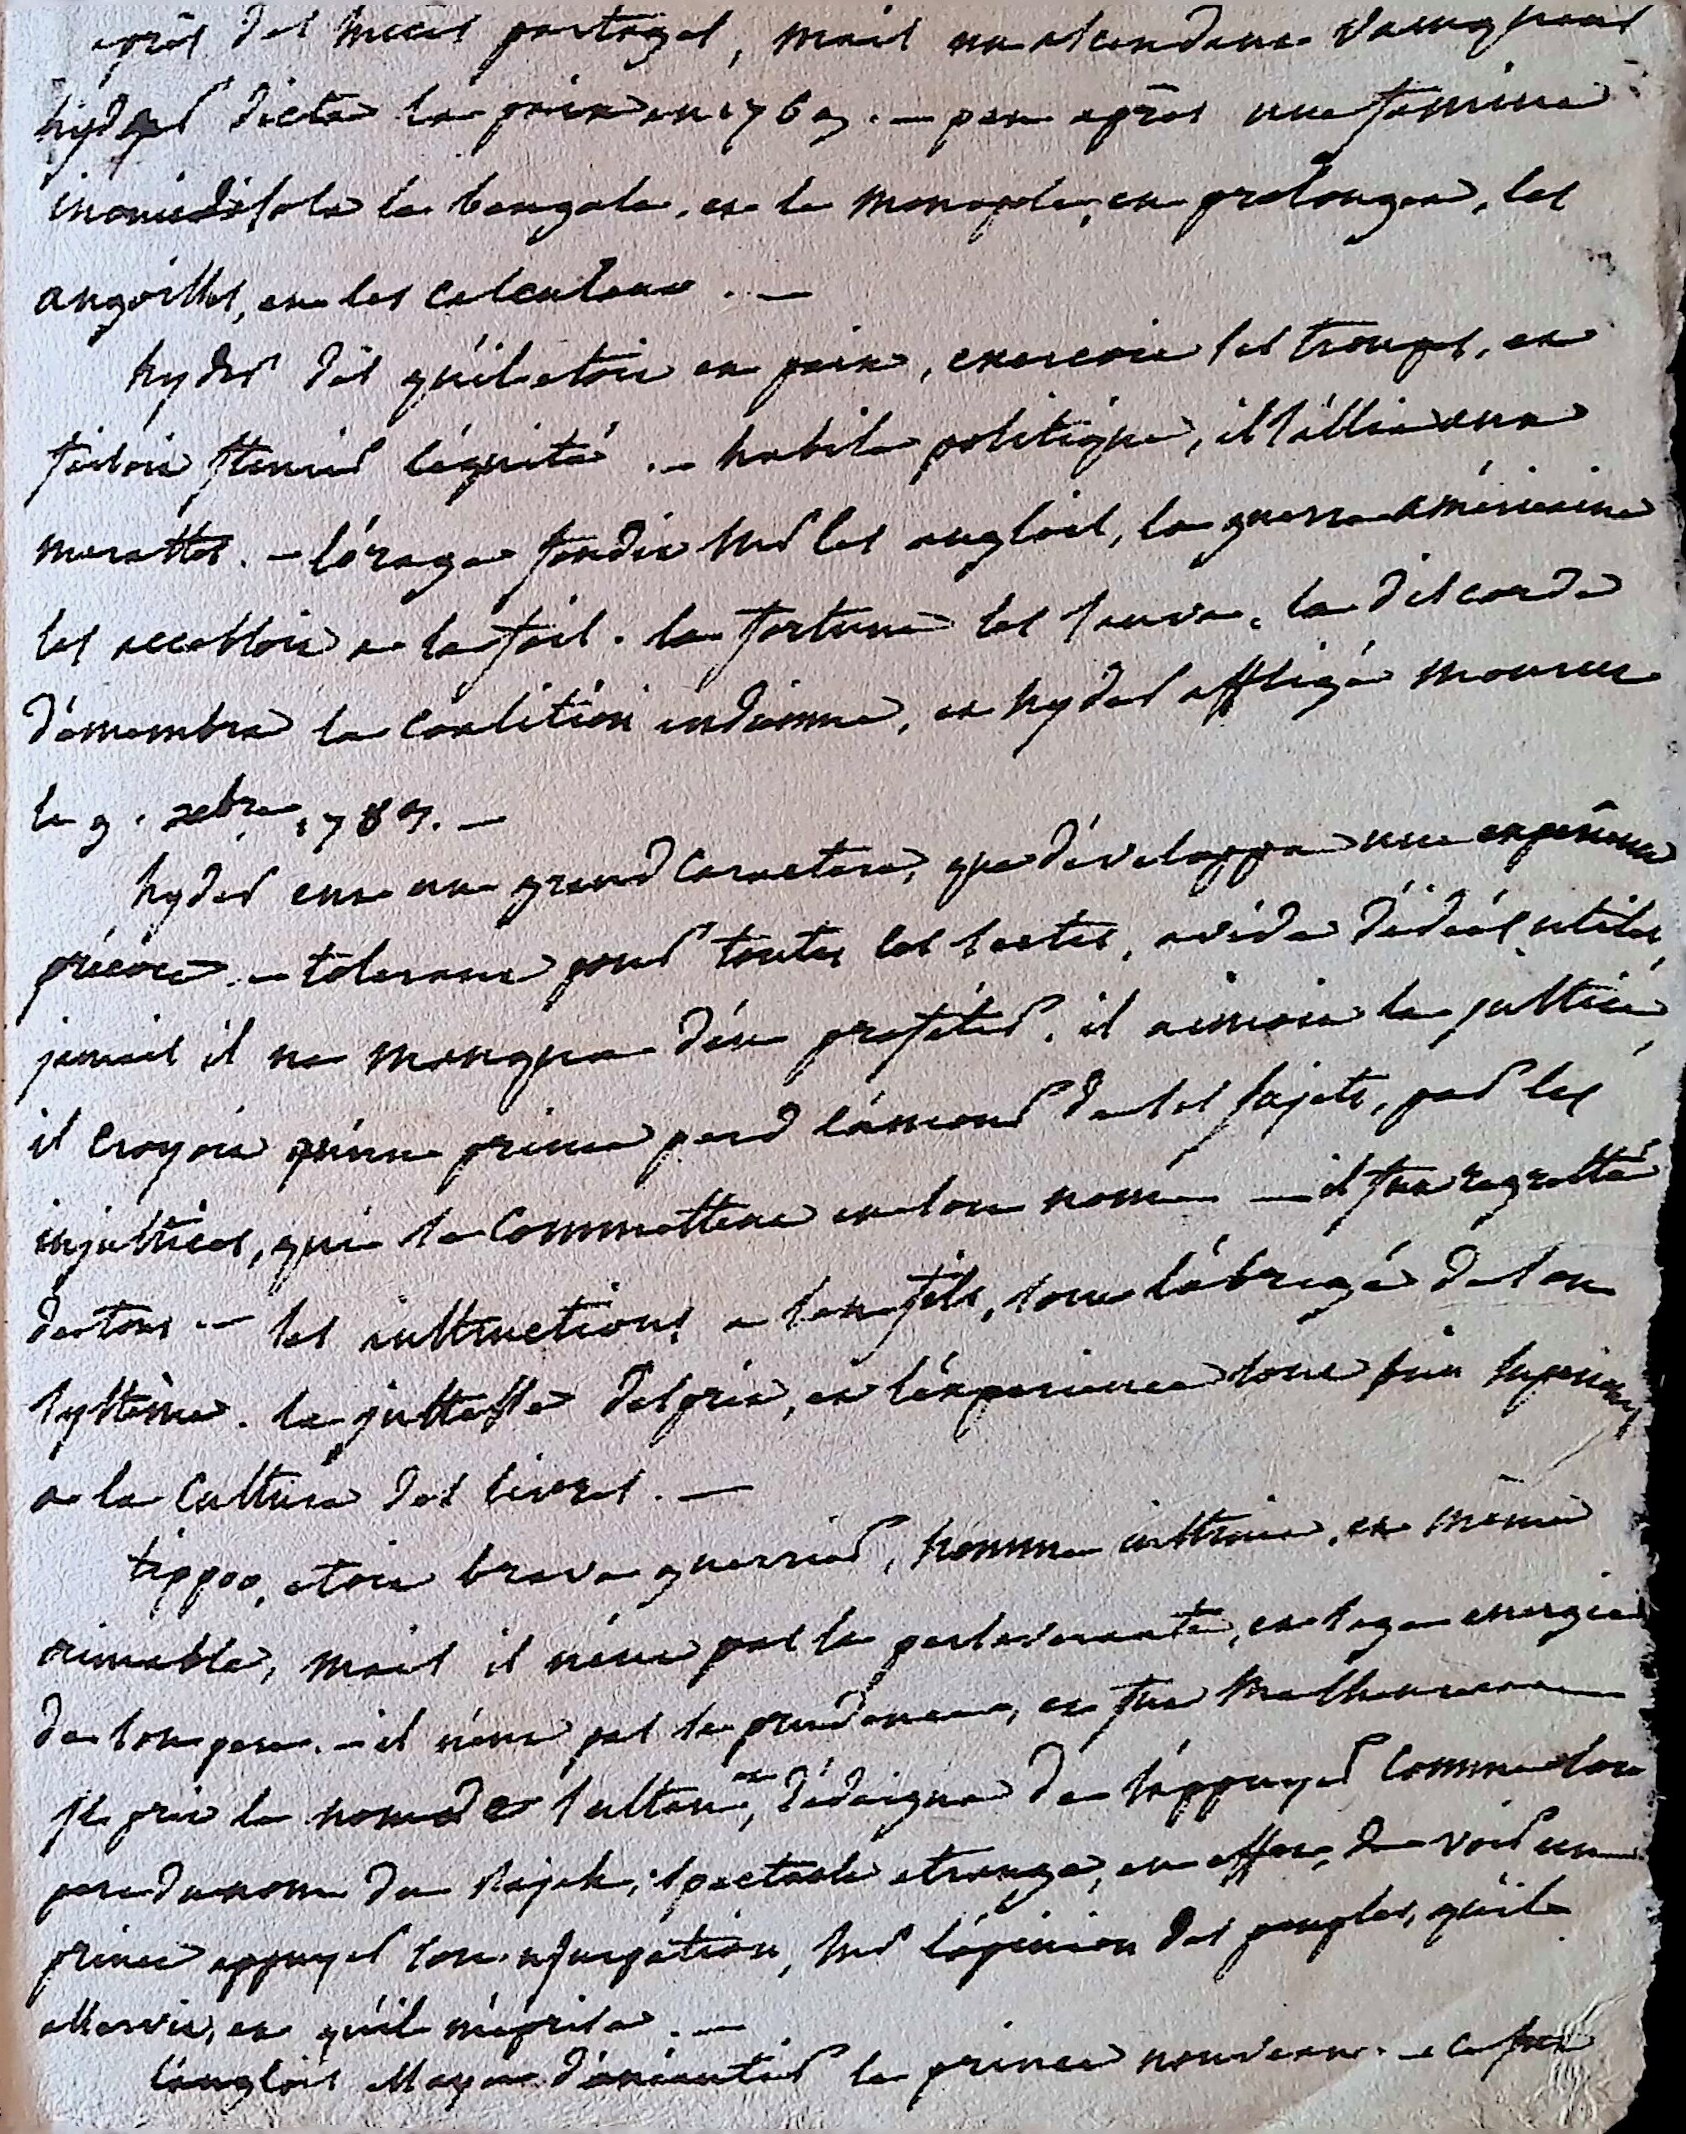 après des succès partagés, mais un ascendant vainqueur
hyder dicta la paix en 1769. — peu après une famine
inouie désola le bengale, et le monopole, en prolongea, les
angoisses, en les calculant. —
hyder dès qu'il etoit en paix, exercoit ses troupes, et
faisoit fleurir l'équité. — habile politique, il s'allia aux
marattes. — l'orage fondit sur les anglois, la guerre américaine
les accabloit a la fois. la fortune les sauva, la discorde
démembra la coalition indienne, et hyder affligé mourut
le 9. xebre 1782. —
hyder eut un grand caractere, que développa une expérience
précoce. — tolerant pour toutes les sectes, avide d'idées utiles,
jamais il ne manqua d'en profiter. il aimoit la justice,
il croyoit qu'un prince perd l'amour de ses sujets, par les
injustices, qui se committent en son nom — il fut regretté
de tous. — ses instructions a son fils, sont l'abregé de son
systême. la justesse d'esprit, et l'experience sont bien superieures
a la culture des livres. —
tippoo, etoit brave guerrier, homme instruit, et même
aimable, mais il n'eut pas la perseverante, et sage energie
de son pere. — il n'eut pas sa prudence, et fut malheureux
il prit le nom de sultan, et dédaigna de s'appuyer comme son
pere du nom du rajah; spectacle etrange, en effet, de voir un
prince appuyer son usurpation, sur l'opinion des peuples, qu'il
asservit, et qu'il méprise. —
l'anglois essaya d'anéantir le prince nouveau. — ce fut